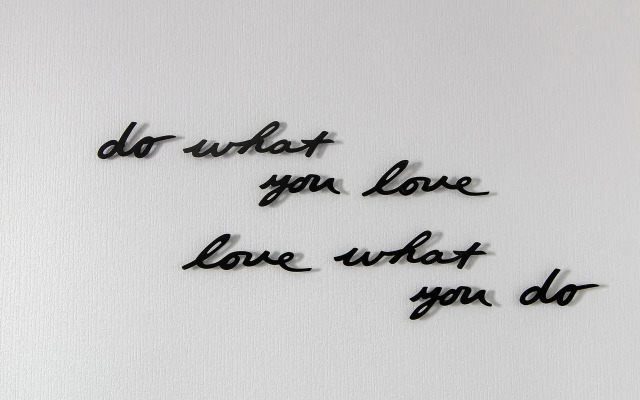 do what
you love
love what
you do